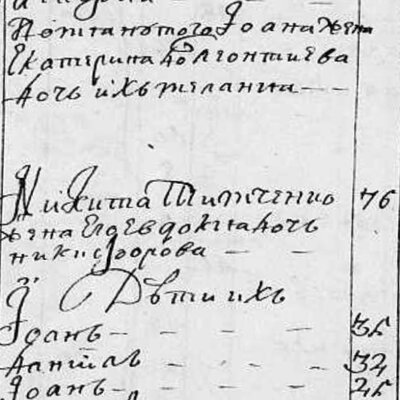 Потапъ того Іоана жена
Екатерина Леонтиева
дочь ихъ меланиа
Никита Тимченко 76
жена его евдокиа дочь
никифорова
Дѣти ихъ
Іоанъ 35
данилъ 32
Іоанъ 25